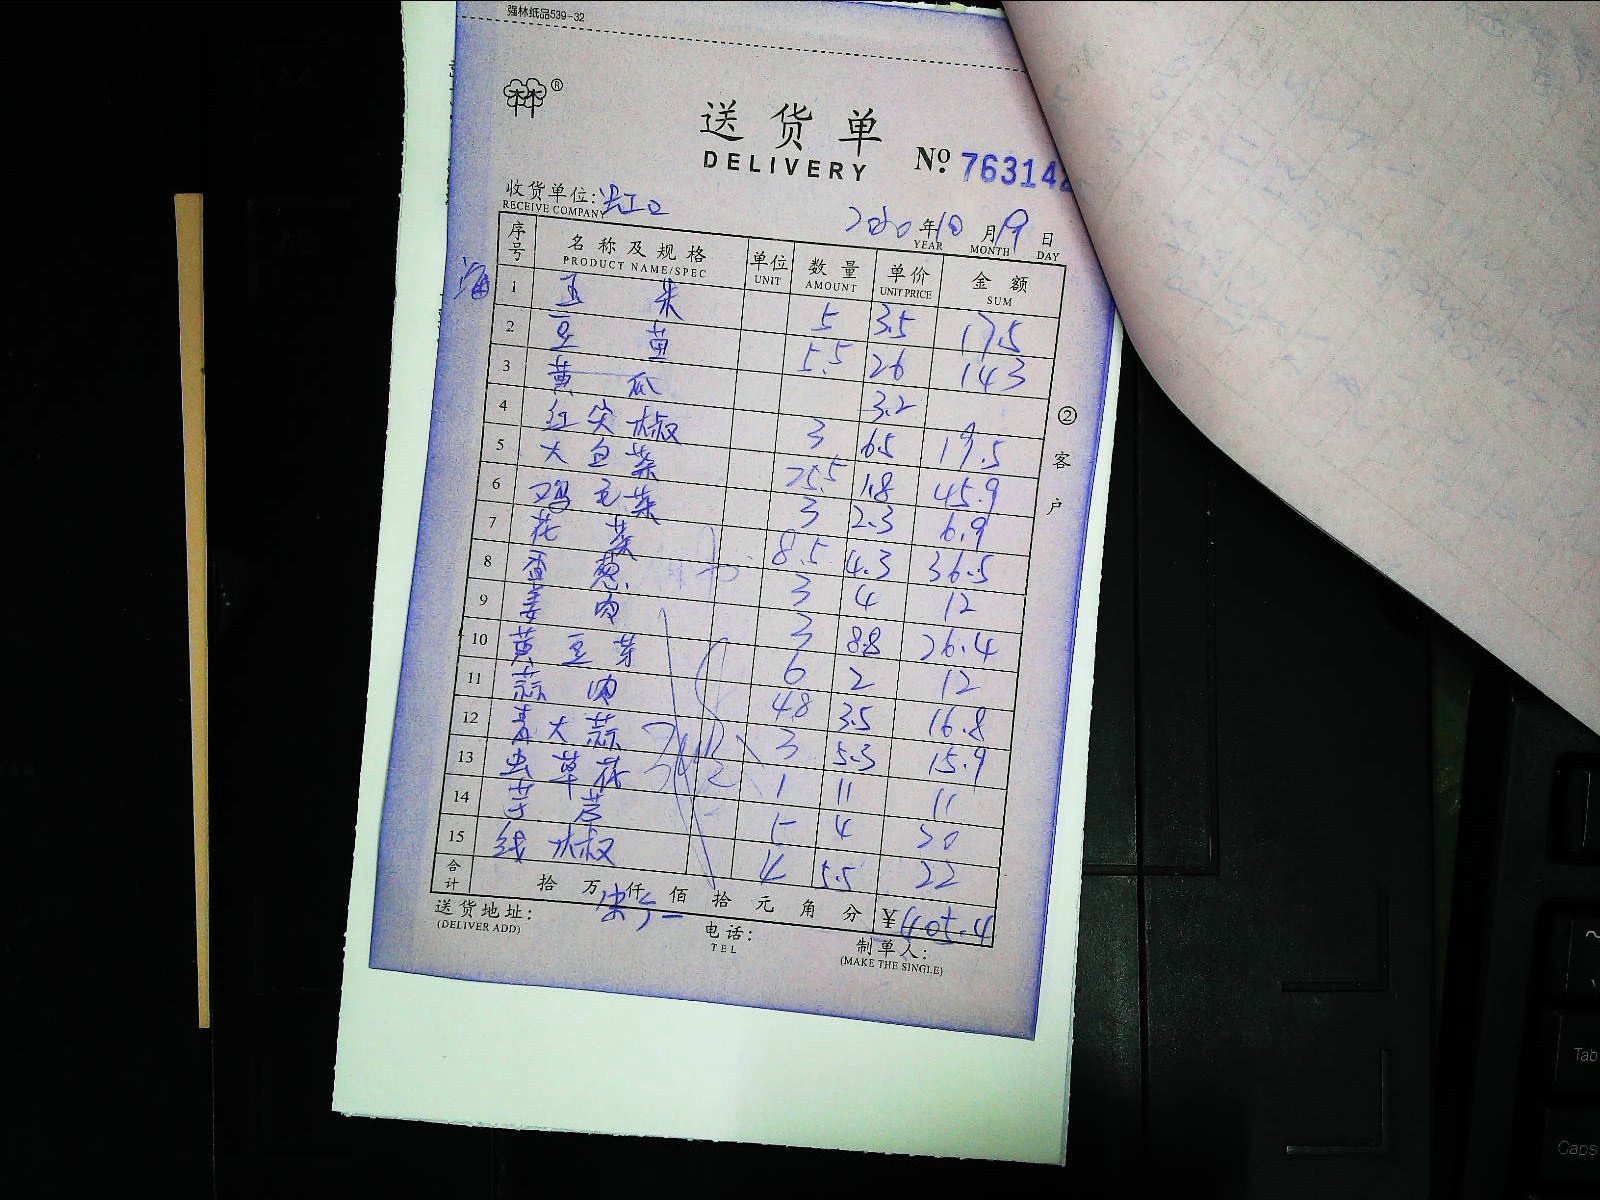 强林纸品539-32
林®
送货单
DELIVERY
№ 763142
收货单位:虹口
RECEIVE COMPANY
2020年10月19日
YEAR MONTH DAY
序号 名称及规格 单位 数量 单价 金额
PRODUCT NAME/SPEC UNIT AMOUNT UNIT PRICE SUM
海
1 玉米 5 3.5 17.5
2 豆苗 5.5 26 143
3 黄瓜 3.2
4 红尖椒 3 6.5 19.5
5 大白菜 25.5 1.8 45.9
6 鸡毛菜 3 2.3 6.9
7 花菜 8.5 4.3 36.5
8 香葱 3 4 12
9 姜肉 3 8.8 26.4
10 黄豆芽 6 2 12
11 蒜肉 4.8 3.5 16.8
12 青大蒜 3 5.3 15.9
13 虫草花 1 11 11
14 芋艿 5 4 20
15 线椒 4 5.5 22
合计 拾万仟佰拾元角分 ¥405.4
送货地址:
(DELIVER ADD)
电话:
TEL
制单人:
(MAKE THE SINGLE)
②客户
Tab
Caps